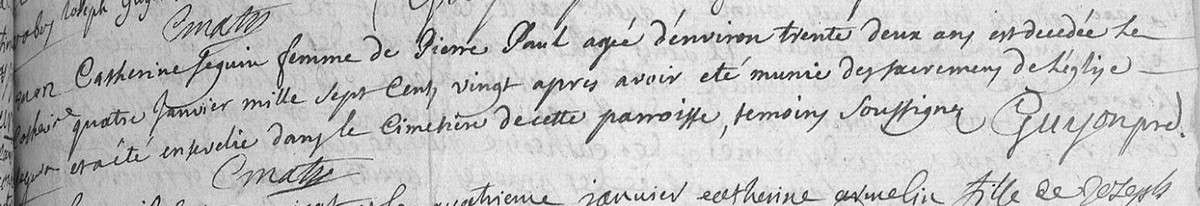 Joseph
Catherine Seguin femme de Pierre Paul ageé d'énviron trente deux ans est decedée le
quatre Janvier mille sept Cents vingt apres avoir eté munie des sacremens de l'église
et a été ensevelie dans le Cimetiére de cette parroisse, temoins soussignez Guyon pre.
quatrieme janvier catherine armelin fille de Joseph